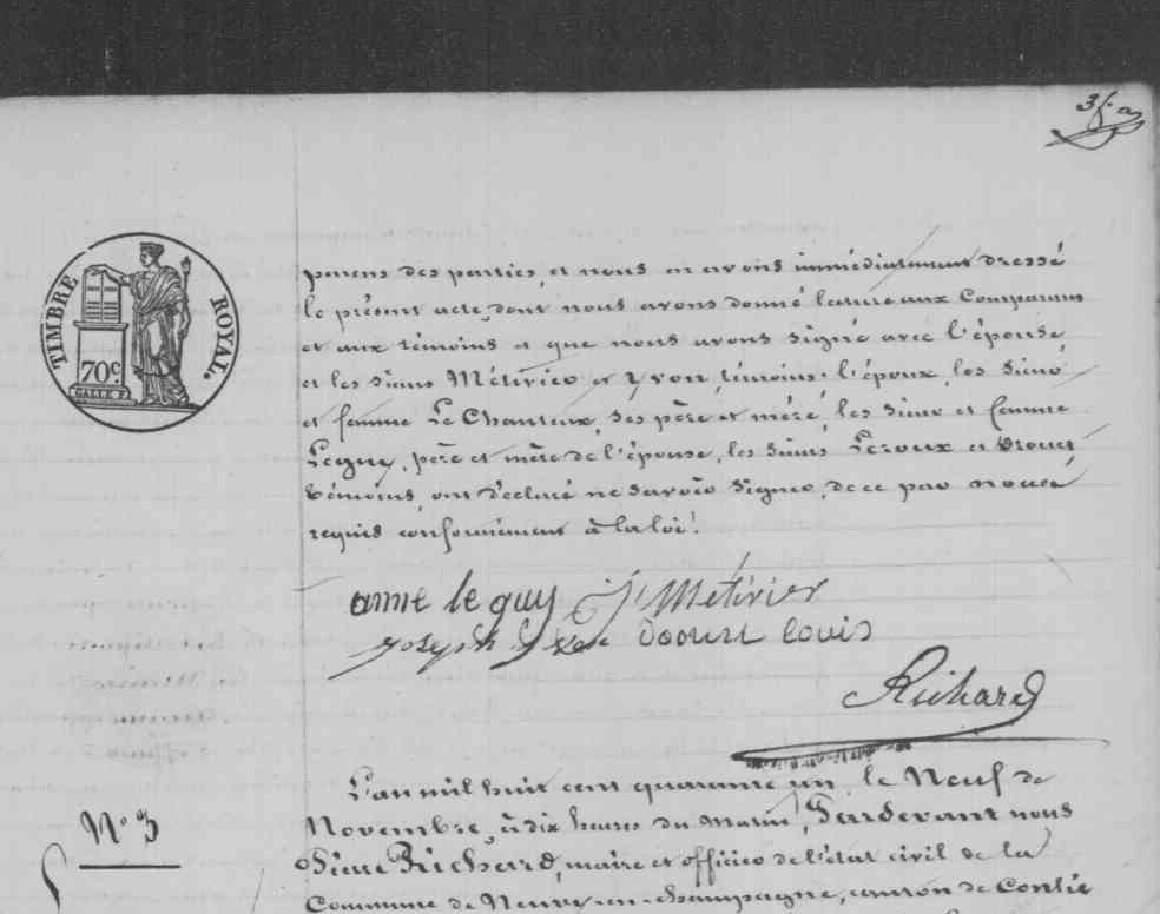 TIMBRE ROYAL.
70c
parens des parties, et nous en avons immédiatement dressé
le présent acte, dont nous avons donné lecture aux Comparans
et aux témoins et que nous avons signé avec l'épouse,
et les Sieurs Métivier et Yvon, témoins. l'époux, les Sieur
et femme Le Chanteux, ses père et mère, les Sieur et femme
Leguy, père et mère de l'épouse, les Sieurs Leroux et
témoins, ont déclaré ne Savoir Signer, de ce par nous
requis conformément à la loi.
anne le guy J Métivier
joseph louis
Richard
L'an mil huit cent quarante un, le Neuf de
N° 3
Novembre, à dix heures du matin, Pardevant nous
Pierre Richard, maire et officier de l'état civil de la
Commune de Neuvy-en-champagne, canton de Conlie